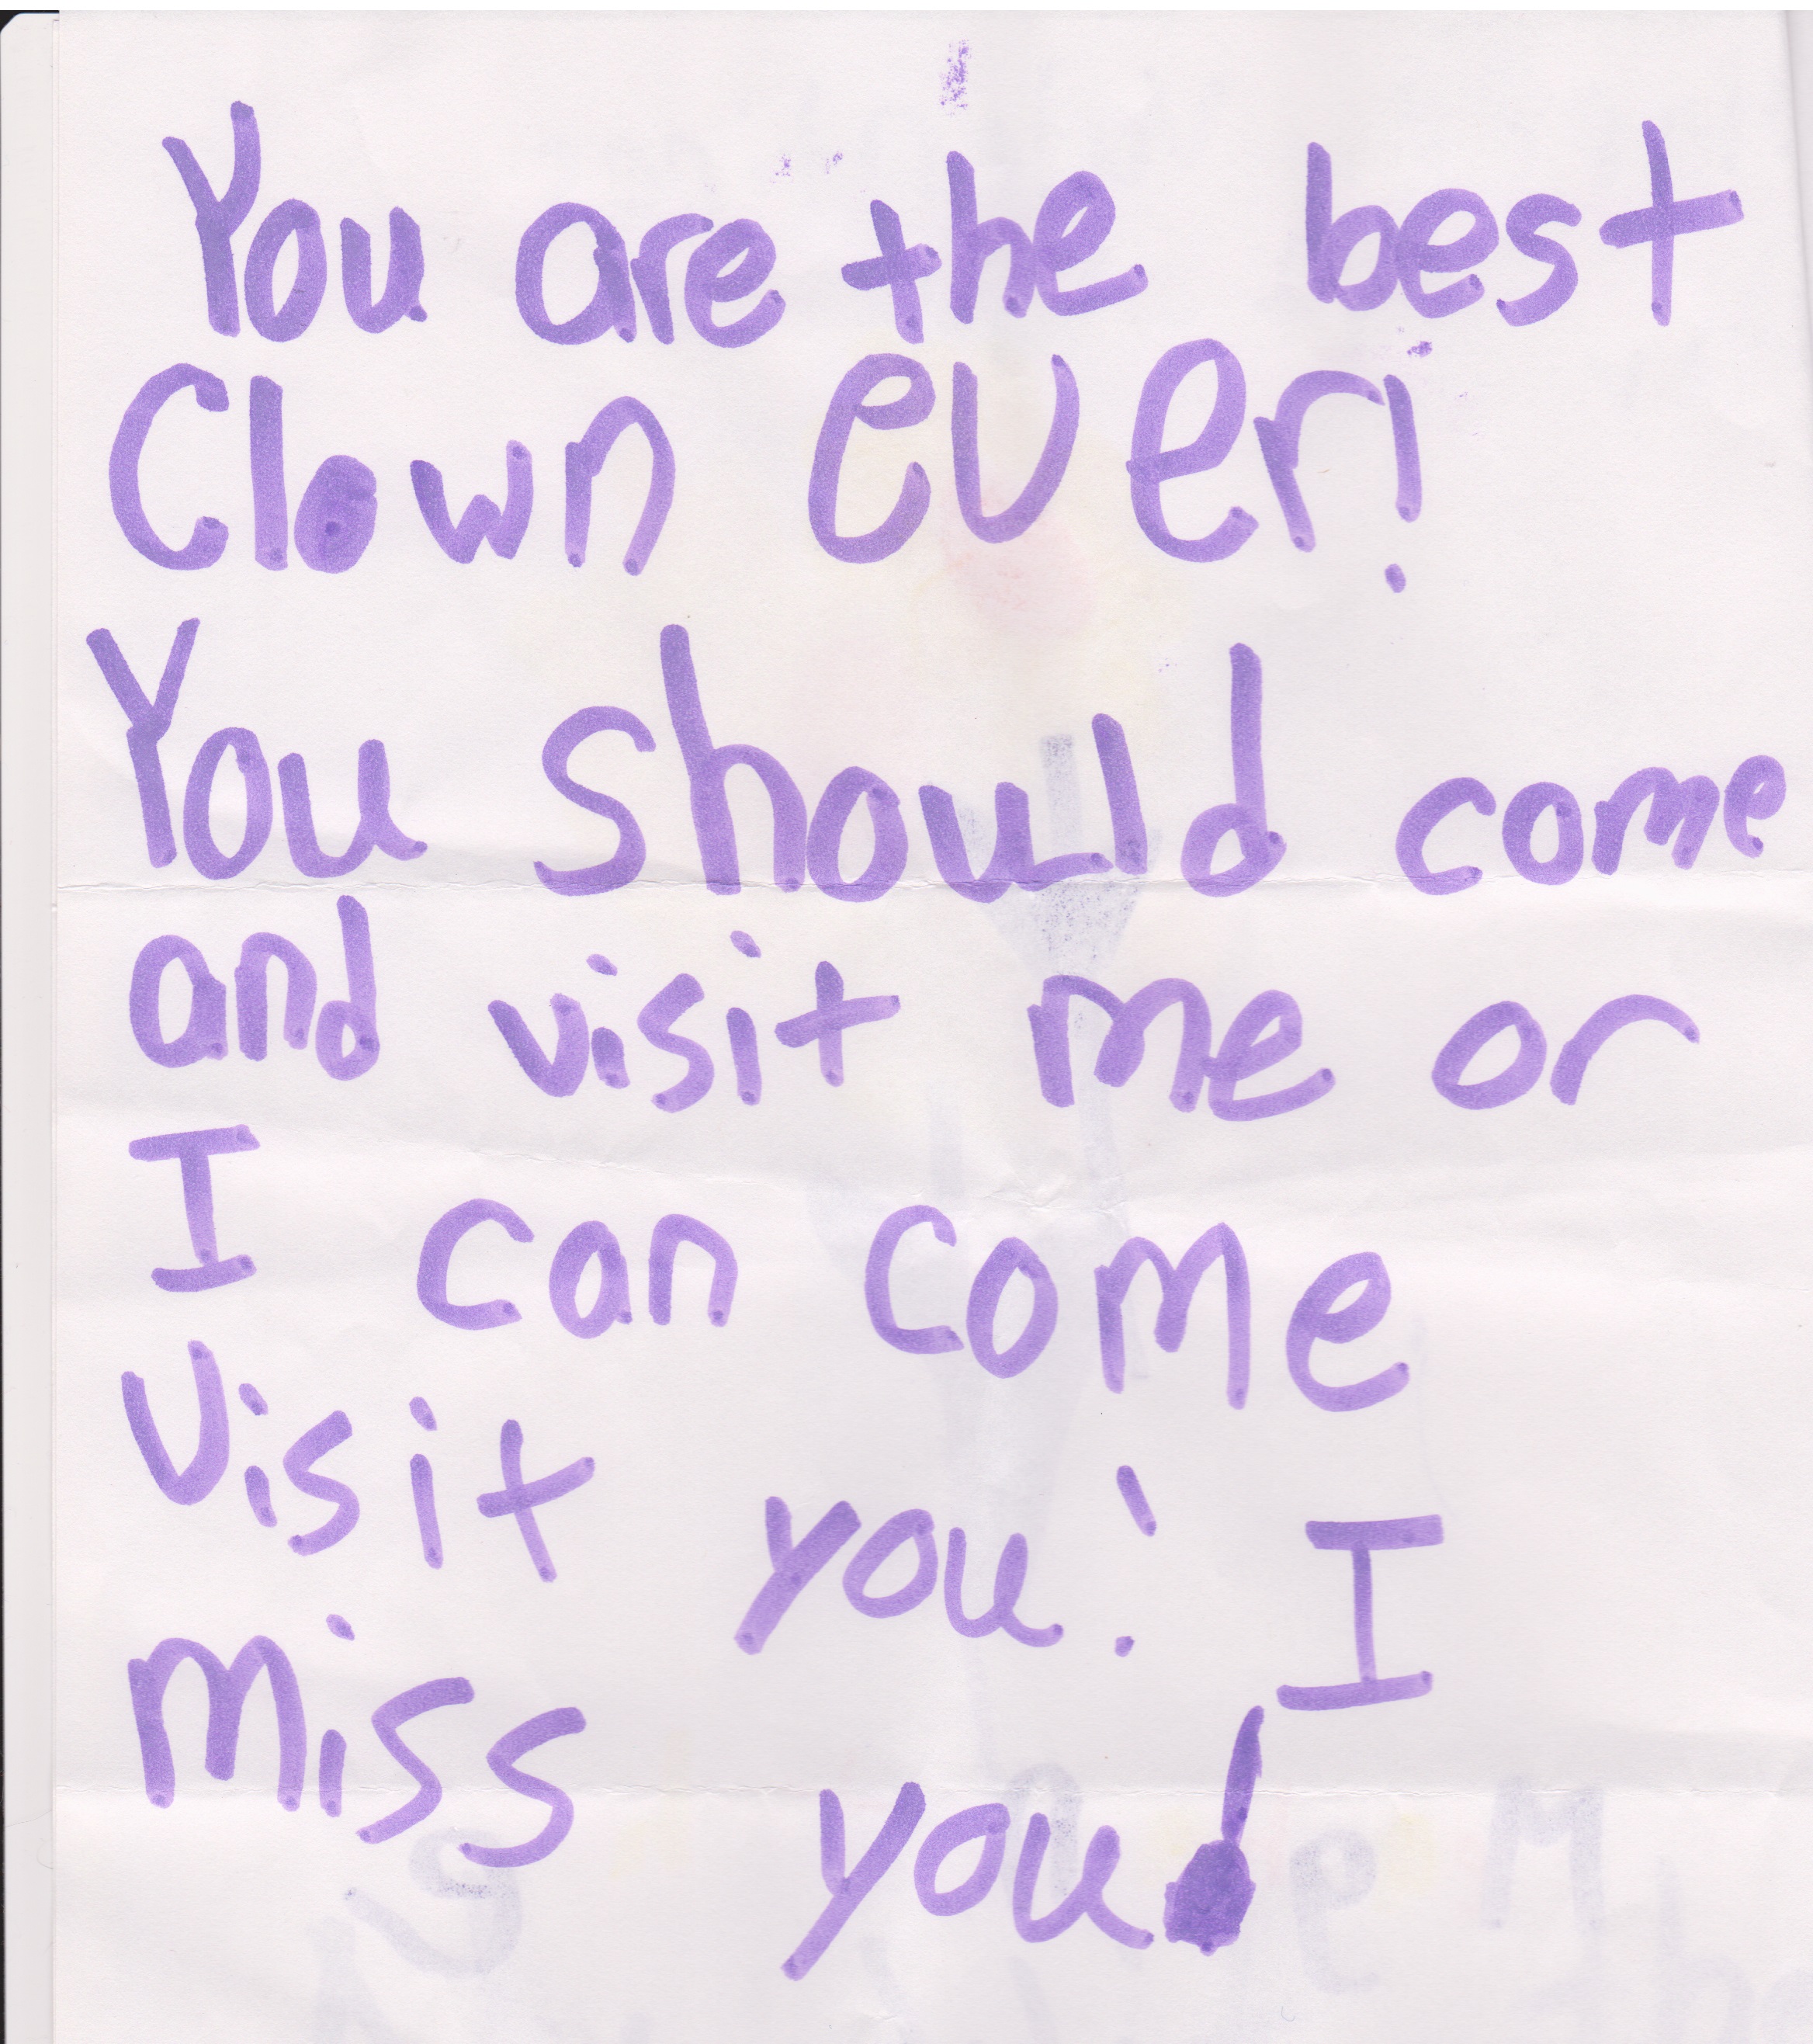 You are the best
Clown ever!
You should come
and visit me or
I can come
Visit you! I
miss you!